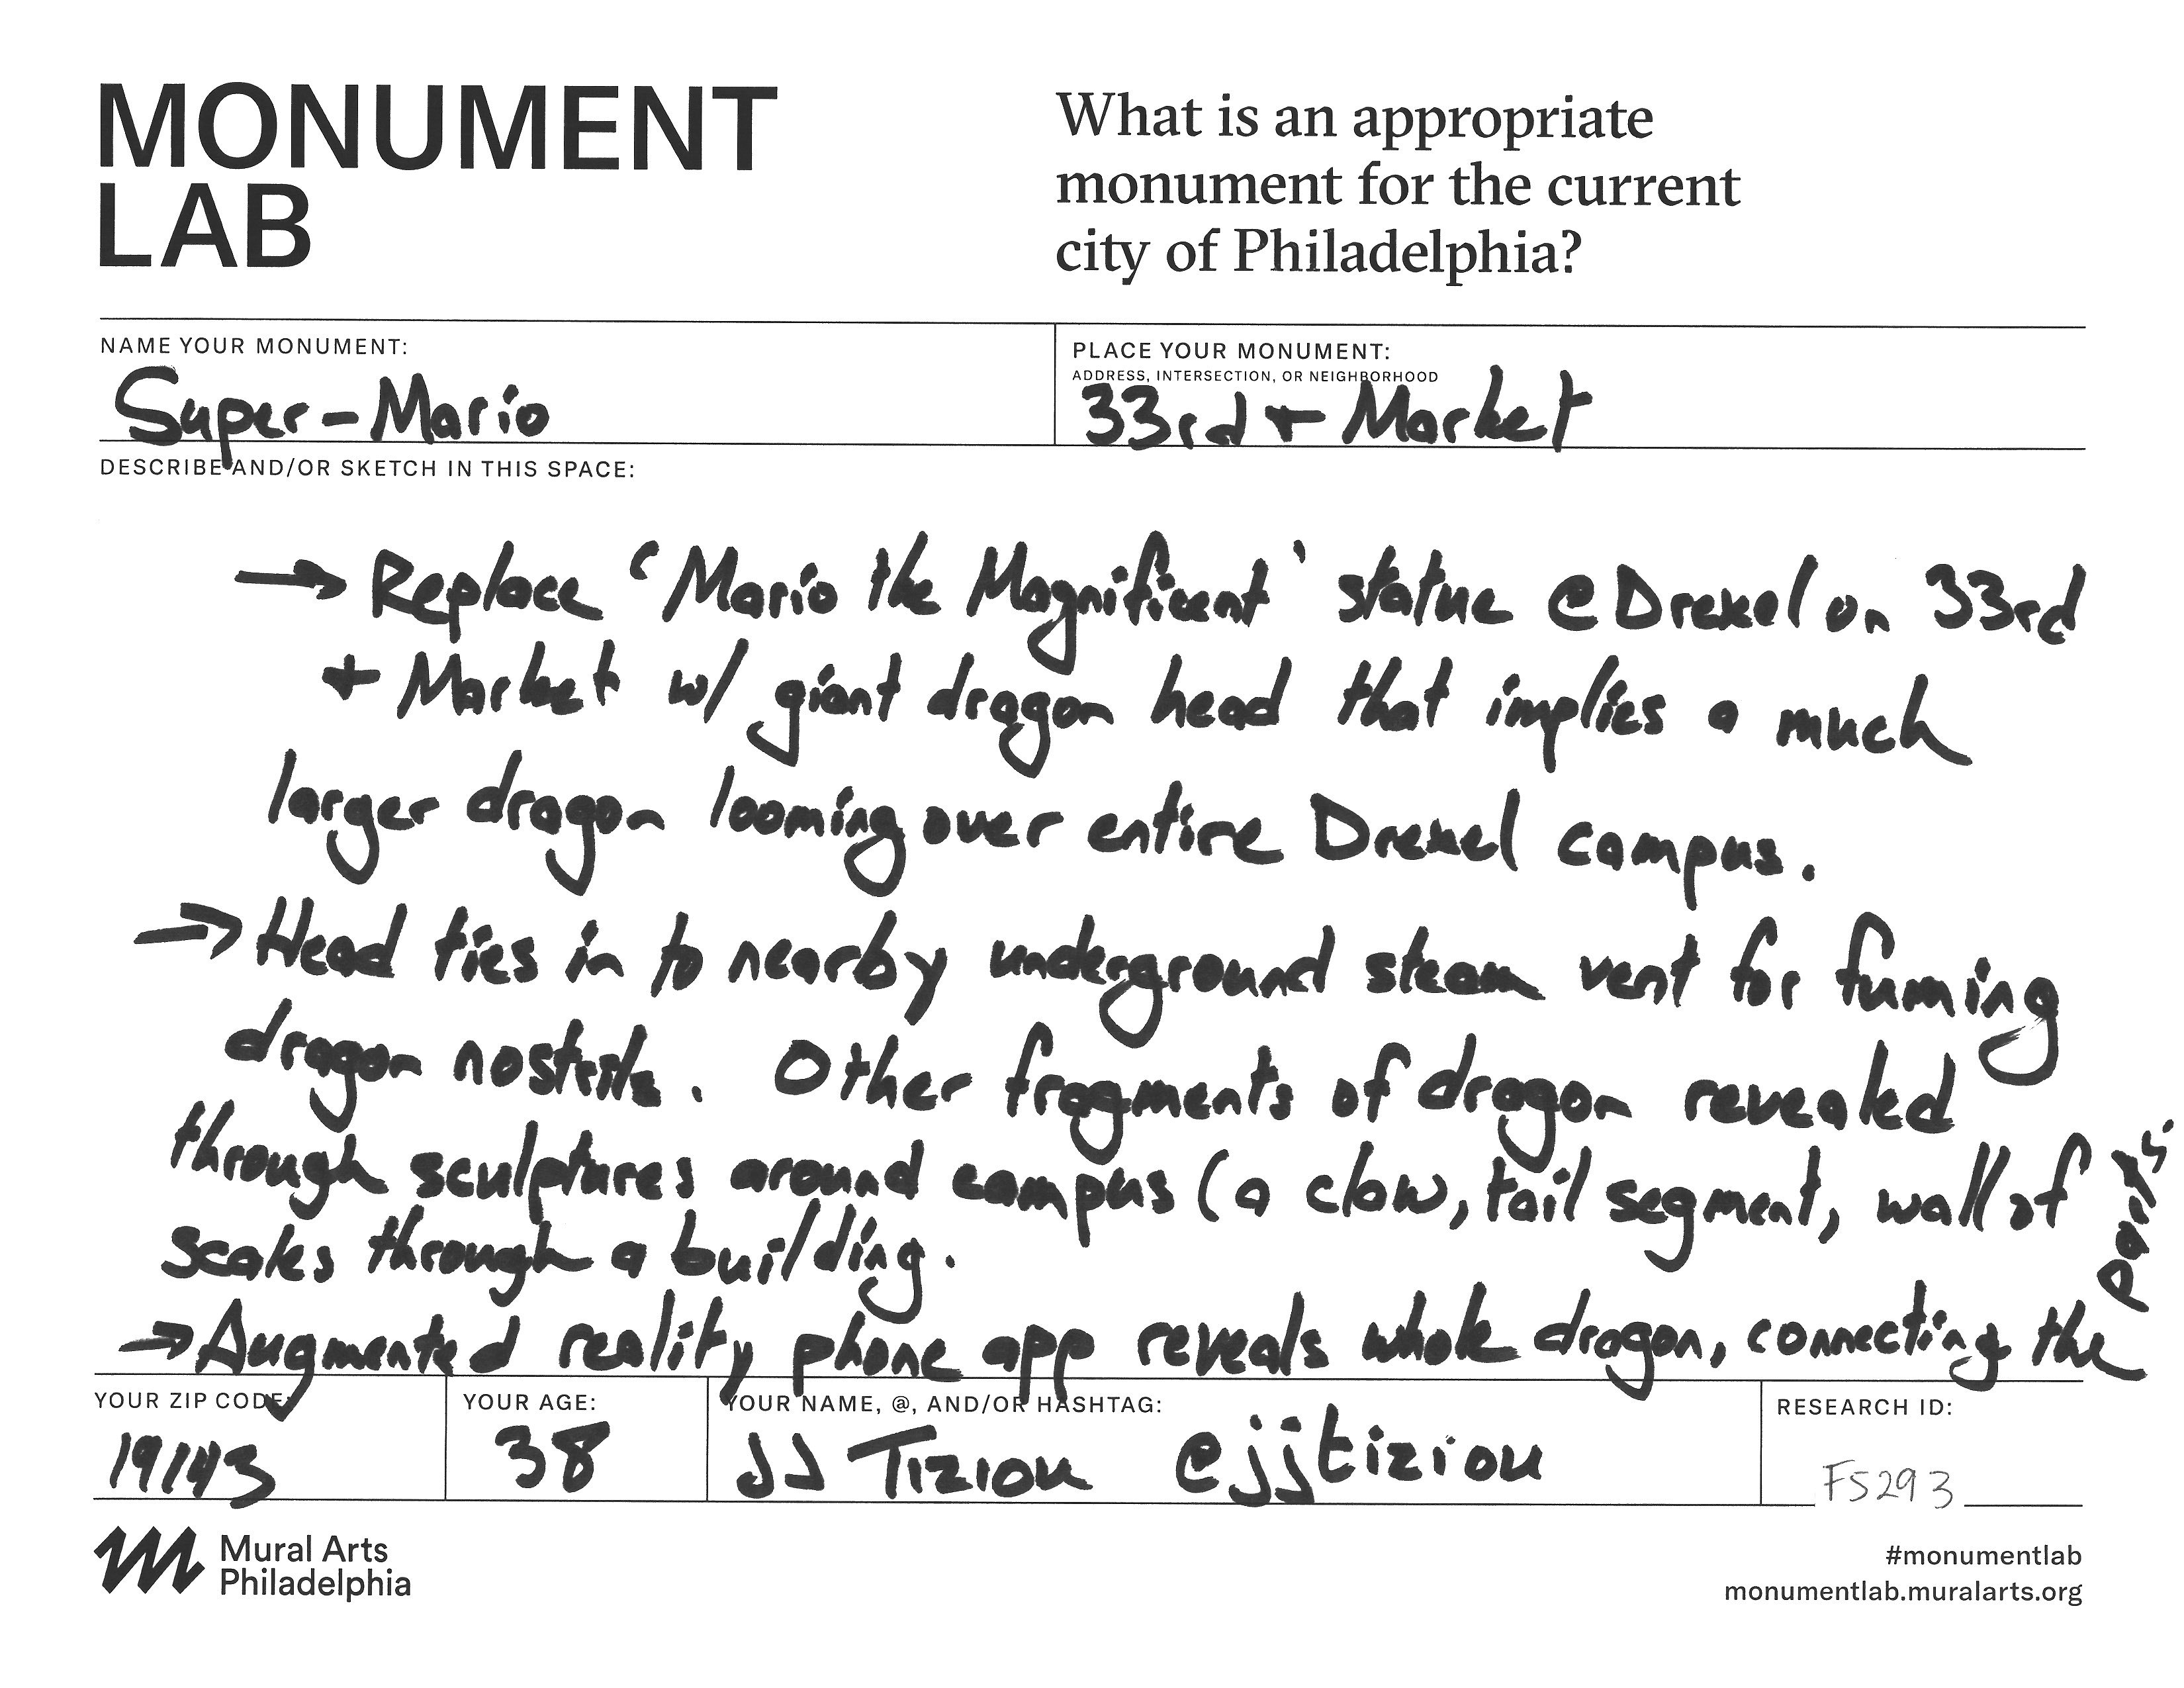 MONUMENT
LAB
What is an appropriate
monument for the current
city of Philadelphia?
NAME YOUR MONUMENT:
Super-Mario
PLACE YOUR MONUMENT:
ADDRESS, INTERSECTION, OR NEIGHBORHOOD
33rd + Market
DESCRIBE AND/OR SKETCH IN THIS SPACE:
→ Replace 'Mario the Magnificent' statue @ Drexel on 33rd
+ Market w/ giant dragon head that implies a much
larger dragon looming over entire Drexel campus.
→ Head ties in to nearby underground steam vent for fuming
dragon nostrils. Other fragments of dragon revealed
through sculptures around campus (a claw, tail segment, wall of
scales through a building.
→ Augmented reality phone app reveals whole dragon, connecting the
parts.
YOUR ZIP CODE:
19143
YOUR AGE:
38
YOUR NAME, @, AND/OR HASHTAG:
JJ Tiziou @jjtiziou
RESEARCH ID:
FS293
Mural Arts
Philadelphia
#monumentlab
monumentlab.muralarts.org